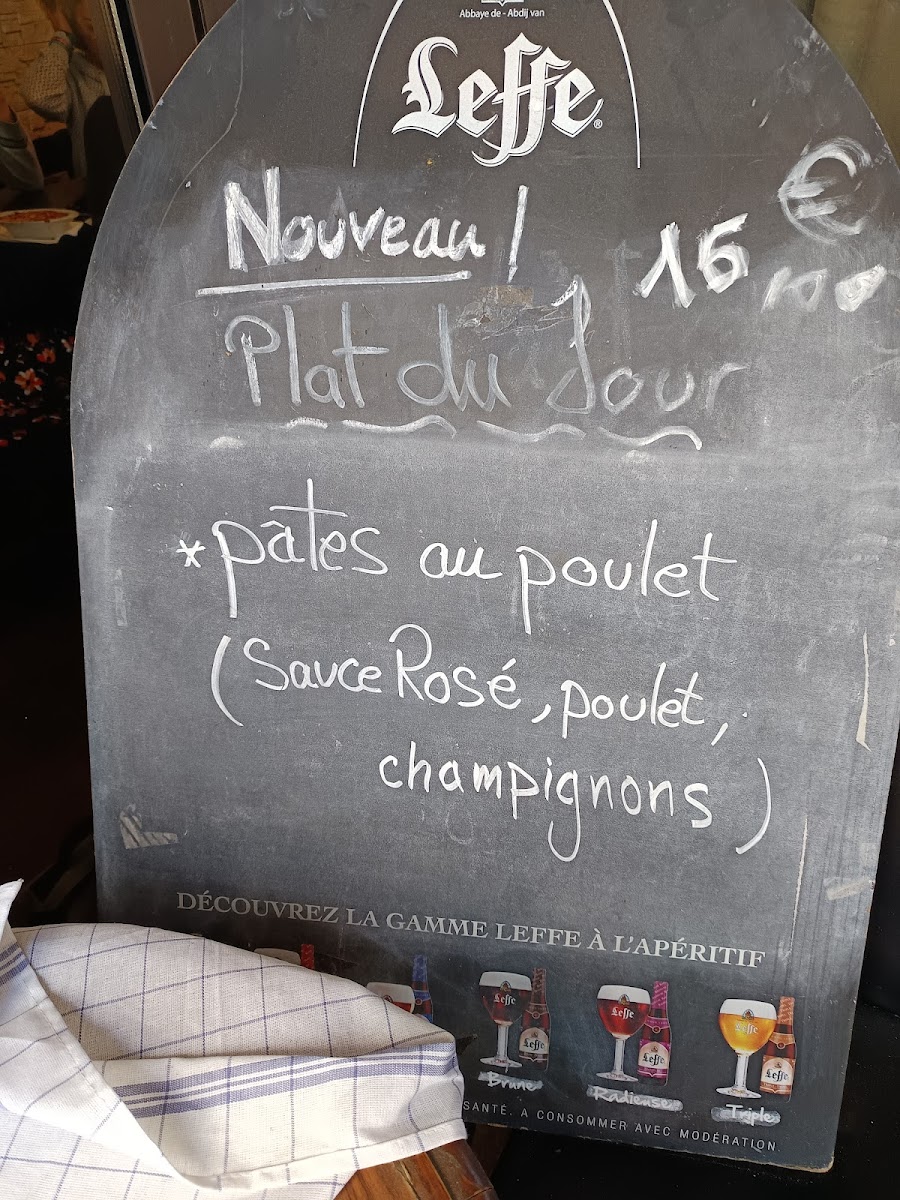 Abbaye de - Abdij van
Leffe®
Nouveau! 16 €
Plat du Jour
*pâtes au poulet
(Sauce Rosé, poulet,
champignons)
DÉCOUVREZ LA GAMME LEFFE À L'APÉRITIF
Leffe Leffe Leffe
Leffe Leffe Leffe
Brune Radieuse Triple
SANTÉ. A CONSOMMER AVEC MODÉRATION.